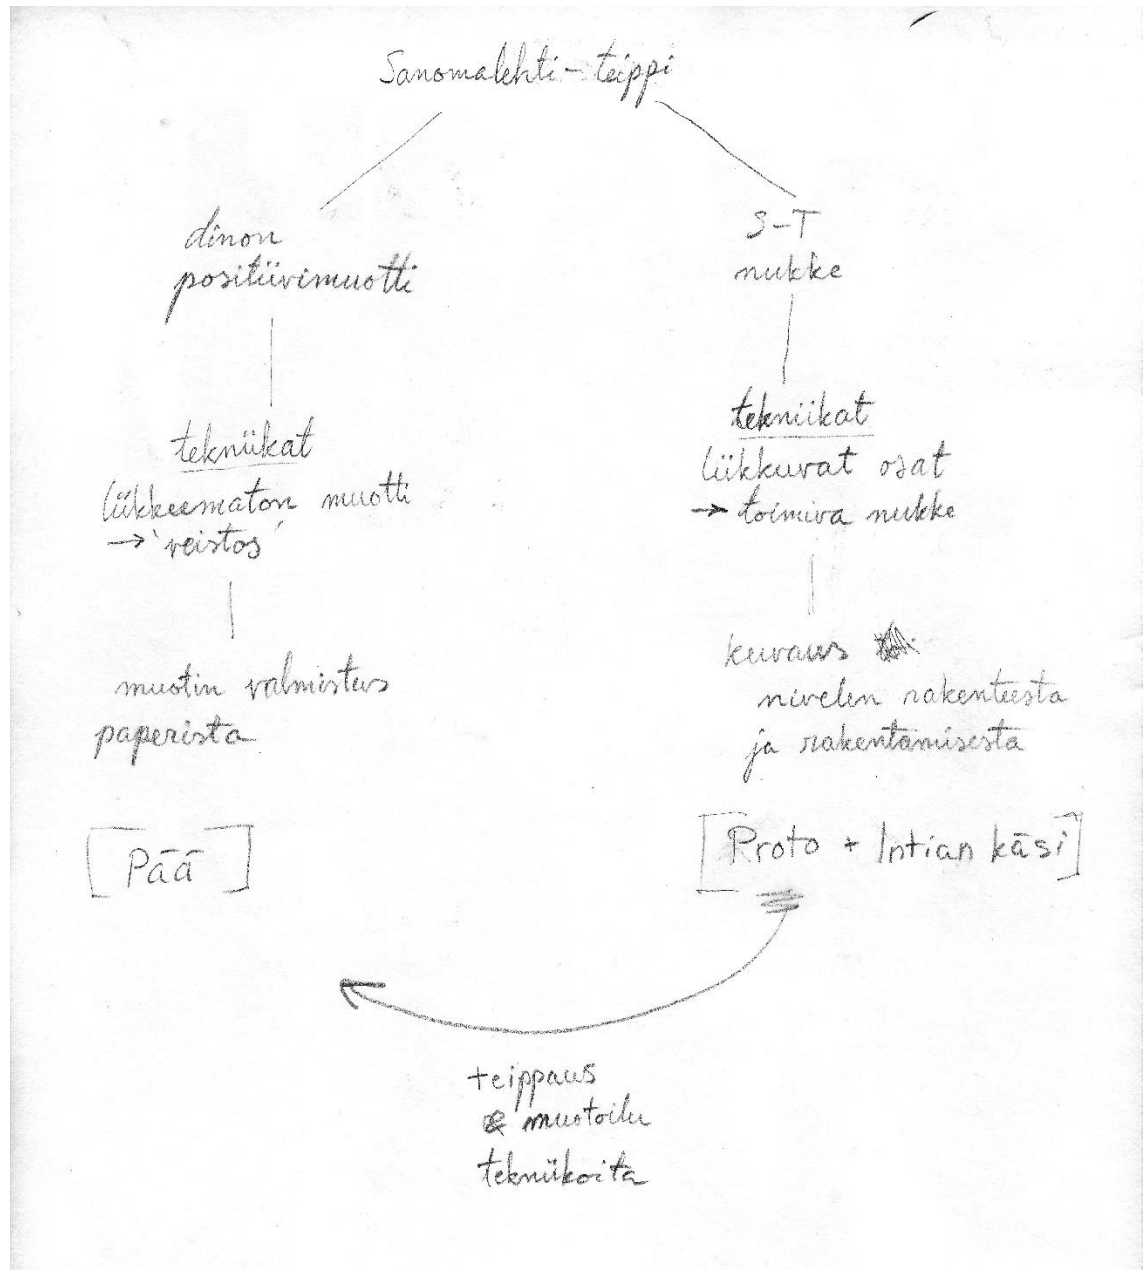 Sanomalehti-teippi
dinon
positiivimuotti
tekniikat
liikkeematon muotti
→ 'veistos'
muotin valmistus
paperista
[Pää]
S-T
nukke
tekniikat
liikkuvat osat
→ toimiva nukke
kuvaus
nivelen rakenteesta
ja rakentamisesta
[Proto + Intian käsi]
teippaus
& muotoilu
tekniikoita